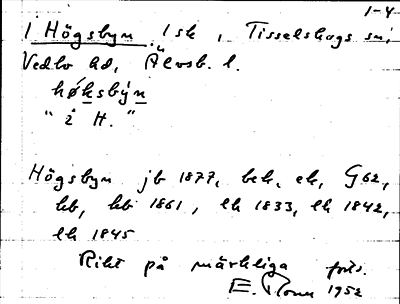 1-4
1 Högsbyn 1 sk, Tisselskogs sn,
Vedbo hd, Älvsb. l.
hǿksby̆n
" i H. "
Högsbyn jb 1877, bek, ek, G62,
hb, hb 1861, lk 1833, lk 1842,
lk 1845
Rikt på märkliga
E. 1952